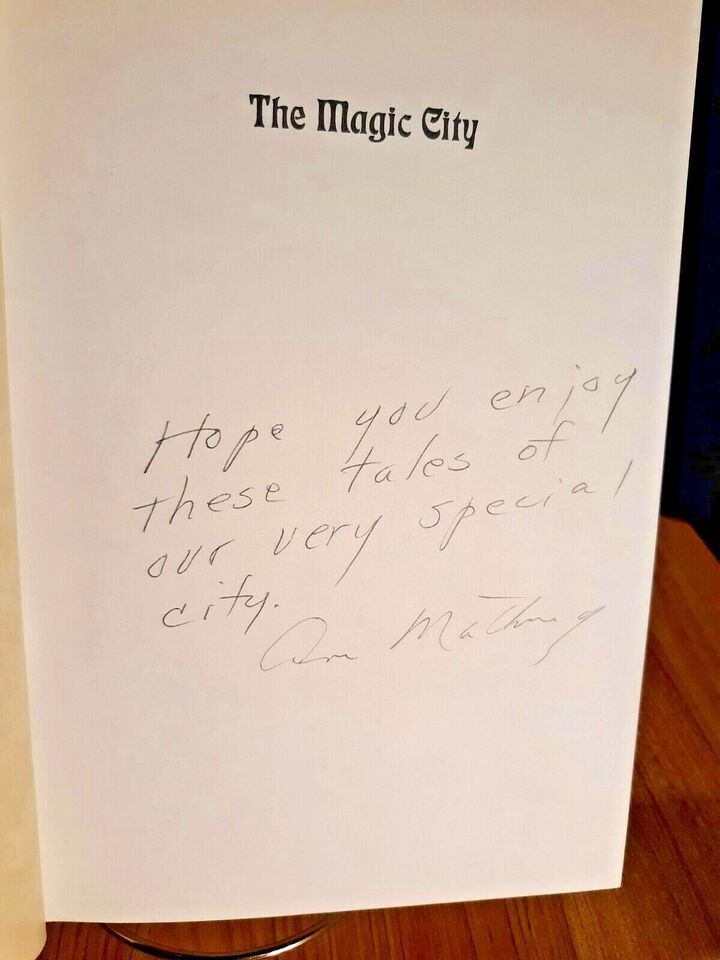 The Magic City
Hope you enjoy
these tales of
our very special
city.
Ann Matheny